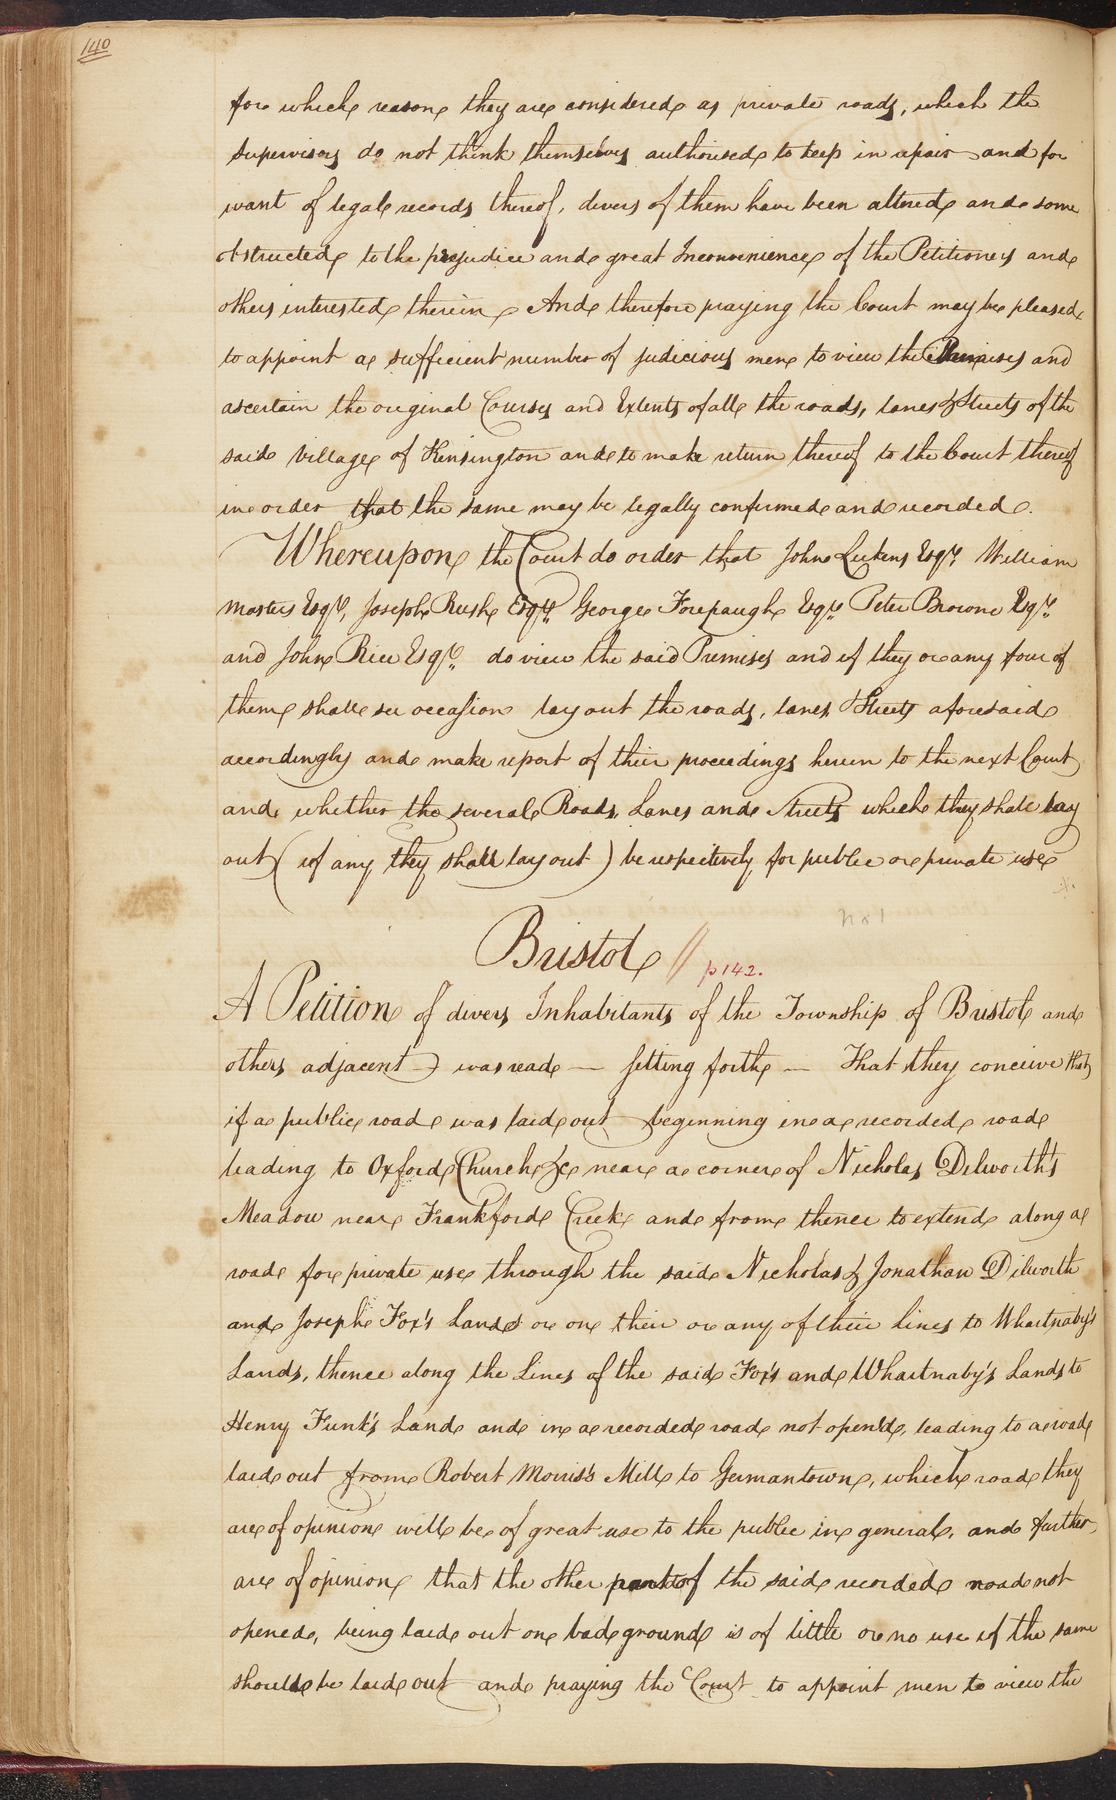 140
for which reason they are considered as private roads, which the
Supervisors do not think themselves authorised to keep in repair and for
want of legal records thereof, divers of them have been altered and some
obstructed to the prejudice and great Inconvenience of the Petitioners and
others interested therein And therefore praying the Court may be pleased
to appoint a sufficient number of judicious men to view the Premises and
ascertain the original Courses and Extents of all the roads, lanes & Streets of the
said Village of Kensington and to make return thereof to the Court thereof
in order that the same may be legally confirmed and recorded.
Whereupon the Court do order that John Lukens Esqr. William
Masters Esqr, Joseph Rush Esqr. George Forepaugh Esqr. Peter Browne Esqr.
and John Rice Esqr. do view the said Premises and if they or any four of
them shall see occasion lay out the roads, lanes & Streets aforesaid
accordingly and make report of their proceedings herein to the next Court
and whether the several Roads, Lanes and Streets which they shall lay
out (if any they shall lay out) be respectively for public or private use
No 1
Bristol // p 142.
A Petition of divers Inhabitants of the Township of Bristol and
others adjacent was read — setting forth — That they conceive that
if a public road was laid out beginning in a recorded road
leading to Oxford Church &c near a corner of Nicholas Dilworth's
Meadow near Frankford Creek and from thence to extend along a
road for private use through the said Nicholas & Jonathan Dilworth
and Joseph Fox's Lands or on their or any of their lines to Whartnaby's
Lands, thence along the Lines of the said Fox's and Whartnaby's Lands to
Henry Funk's Land and in a recorded road not open'd, leading to a road
laid out from Robert Morris's Mill to Germantown, which road they
are of opinion will be of great use to the public in general, and further
are of opinion that the other part of the said recorded road not
opened, being laid out on bad ground is of little or no use if the same
should be laid out and praying the Court to appoint men to view the